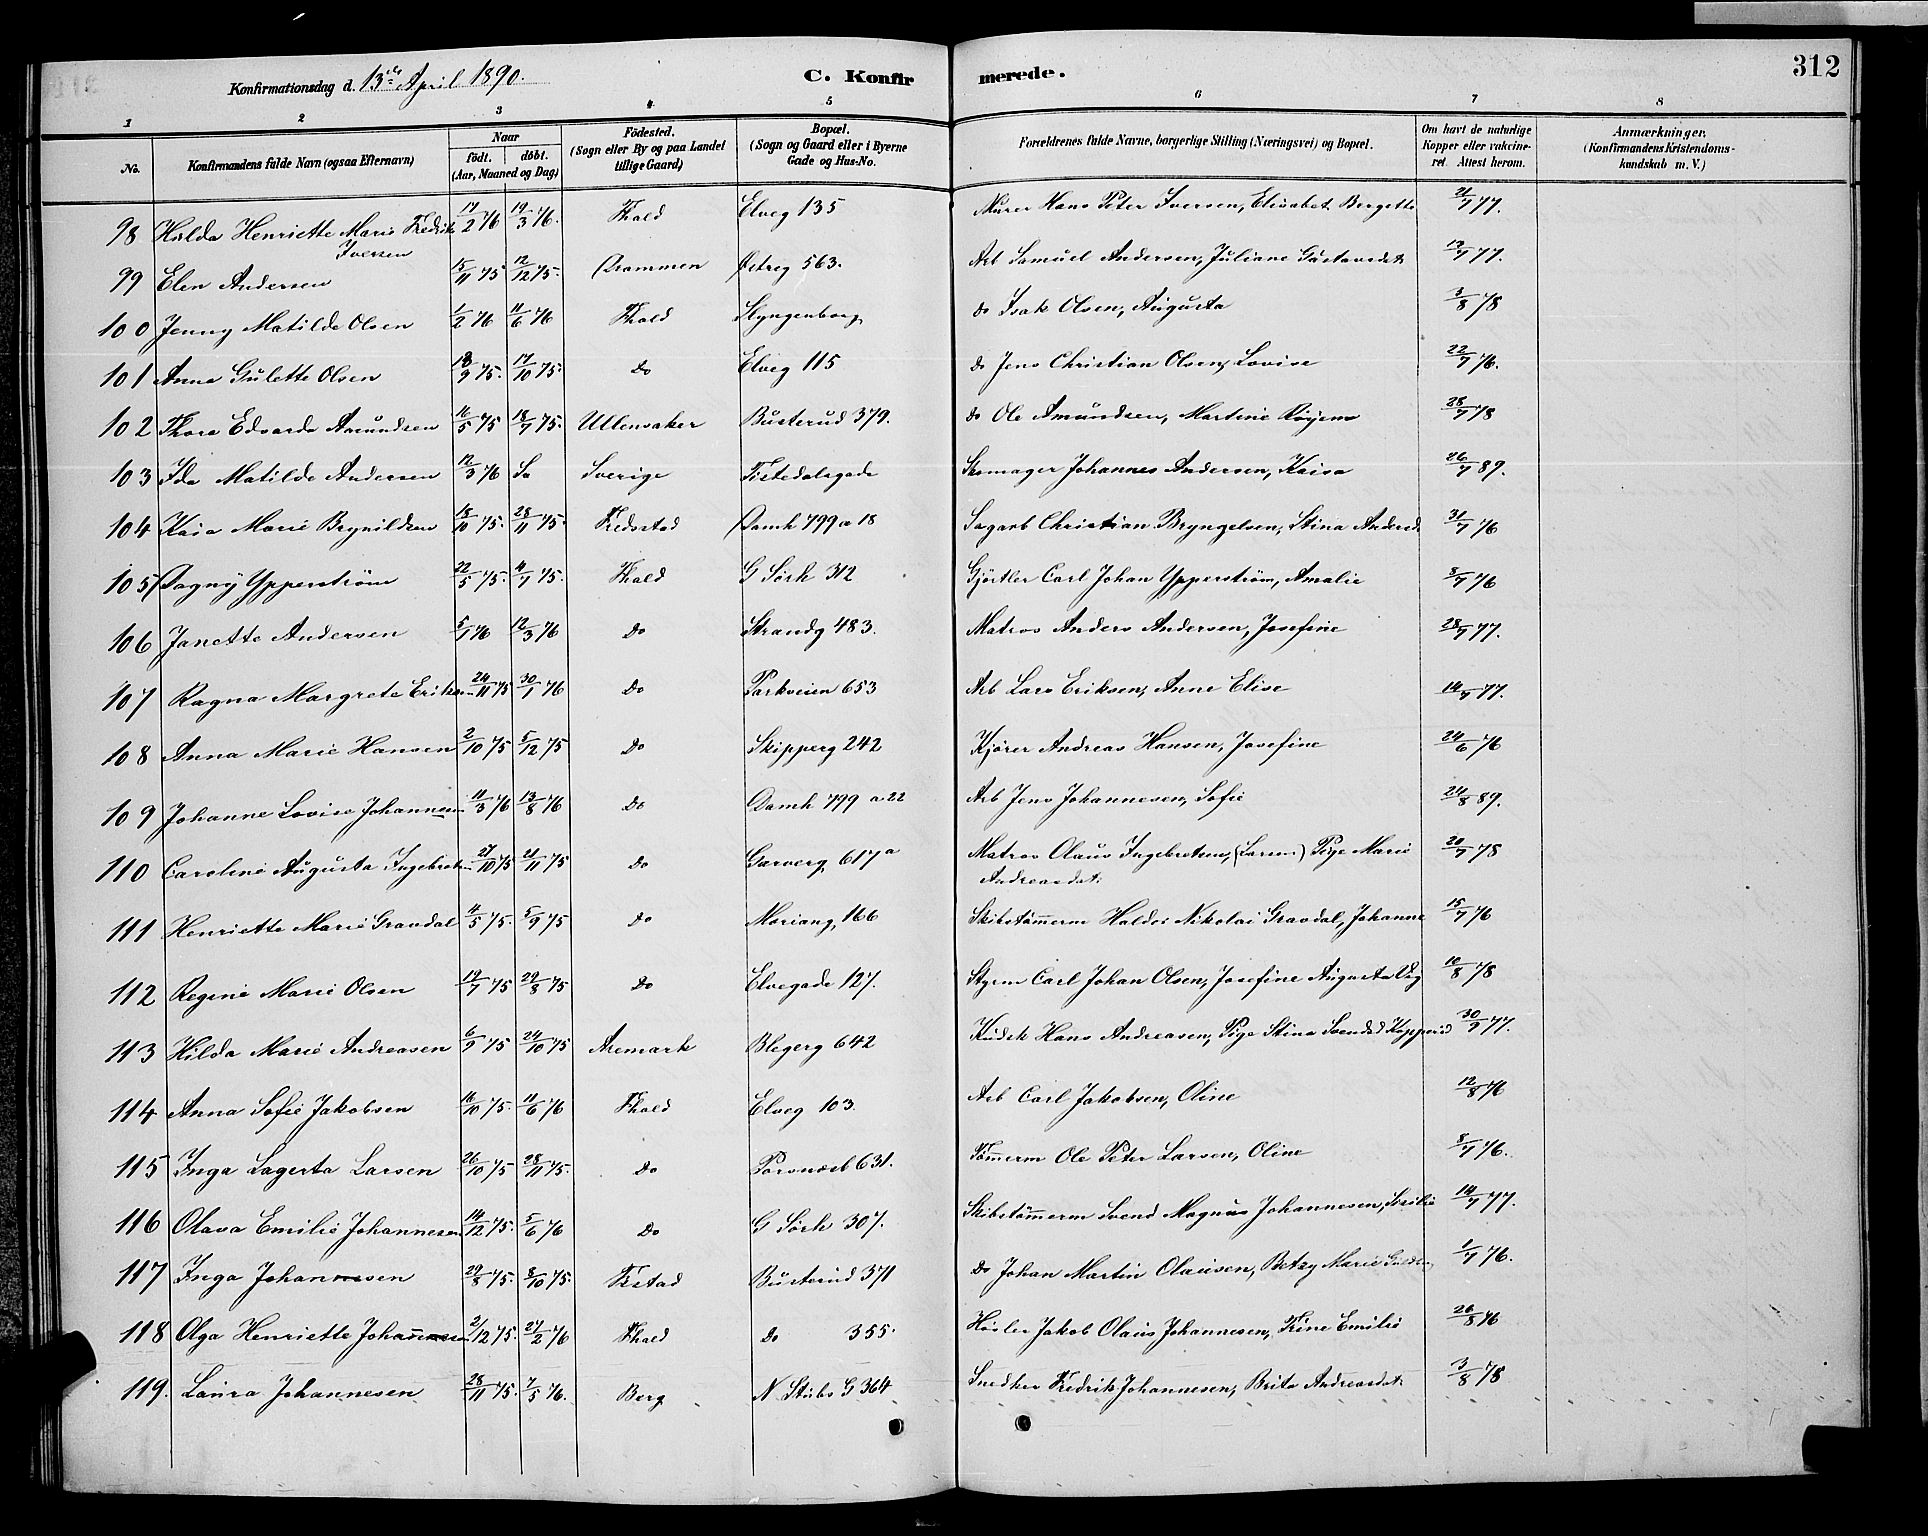 312
Konfirmationsdag d. 13de April 1890. C. Konfir merede.
1 2 3 4 5 6 7 8
No. Konfirmandens fulde Navn (ogsaa Efternavn) Naar født. døbt. (Aar, Maaned og Dag) Födested. (Sogn eller By og paa Landet tillige Gaard) Bopæl. (Sogn og Gaard eller i Byerne Gade og Hus-No. Forældrenes fulde Navne, borgerlige Stilling (Næringsvei) og Bopæl. Om havt de naturlige Kopper eller vaccineret. Attest herom. Anmærkninger. (Konfirmandens Kristendomskundskab m. V.)
98 Hilda Henriette Marie Fredrikke Iversen 17/2 76 19/3 76. Fhald Elveg 135 Murer Hans Peter Iversen, Elisabet Bergette 21/7 77.
99 Elen Andersen 15/11 75 12/12 75. Drammen Østreg 563. Arb Samuel Andersen, Juliane Gustavsdat 13/7 77.
100 Jenny Matilde Olsen 1/2 76 11/6 76 Fhald Klyngenborg do Isak Olsen, Augusta 3/8 78
101 Anna Gulette Olsen 18/9 75. 17/10 75. Do Elveg 115 do Jens Christian Olsen, Lovise 22/7 76.
102 Thora Edvarda Amundsen 16/5 75 18/7 75. Ullensaker Busterud 379. do Ole Amundsen, Martine 28/7 78
103 Ida Matilde Andersen 12/3 76 Sverige Tistedalsgade Skomager Johannes Andersen, Kaisa 26/7 89.
104 Kaia Marie Brynildsen 18/10 75. 28/11 75. Fredsstad Damh 799 a 18 Sagarb Christian Bryngelsen, Stina Andersd 31/7 76
105 Dagny Ypperstrøm 22/5 75. 4/7 75. Fhald G Sørh 312 Gjørtler Carl Johan Ypperstrøm, Amalie 8/7 76
106 Janette Andersen 5/1 76 12/3 76 Do Strandg 483. Matros Anders Andersen, Josefine 28/7 77.
107 Ragna Margrete Eriksen 24/11 75 30/1 76 Do Parkveien 653 Arb Lars Eriksen, Anne Elise 14/7 77.
108 Anna Marie Hansen 2/10 75 5/12 75 Do Skipperg 242 Kjører Andreas Hansen, Josefine 24/6 76
109 Johanne Lovise Johannesen 11/3 76 13/8 76 Do Damh 799 a 22 Arb Jens Johannesen, Sofie 24/8 89.
110 Caroline Augusta Ingebretsen 27/10 75 21/11 75 Do Garverg 617 a Matros Olaus Ingebretsen, (Larsen) Pige Marie Andreasdat. 20/7 78
111 Henriette Marie Gravdal 4/5 75. 5/9 75 Do Moriang, 166 Skibstømmerm Haldor Nikolai Gravdal, Johanne 15/7 76
112 Regine Marie Olsen 19/7 75 29/8 75 Do Elvegade 127. Styrm Carl Johan Olsen, Josefine Augusta 10/8 78
113 Hilda Marie Andreasen 6/9 75 24/10 75 Aremark Blegerg 642 Kudsk Hans Andreasen, Pige Stina Svendsd 30/9 77.
114 Anna Sofie Jakobsen 16/10 75. 11/6 76 Fhald Elveg 103. Arb Carl Jakobsen, Oline 12/8 76
115 Inga Lagerta Larsen 26/10 75 28/11 75. Do Porsnæsb 631. Tømmerm Ole Peter Larsen, Oline 8/7 76.
116 Olava Emilie Johannesen 14/12 75. 5/6 76 Do G Sørh 307. Skibstømmerm Svend Magnus Johannesen, 14/7 77.
117 Inga Johannesen 29/8 75. 8/10 75. Fkstad Busterud 371 Do Johan Martin Olausen, Betzy Marie 1/7 76.
118 Olga Henriette Johannesen 2/12 75. 27/2 76 Fhald Do 355. Høsler Jakob Olaus Johannesen, Trine Emilie 26/8 76
119. Laura Johannesen 28/11 75. 7/5 76. Berg N Stubs G 364 Snedker Fredrik Johannesen, Brita Andreasdat. 3/8 78